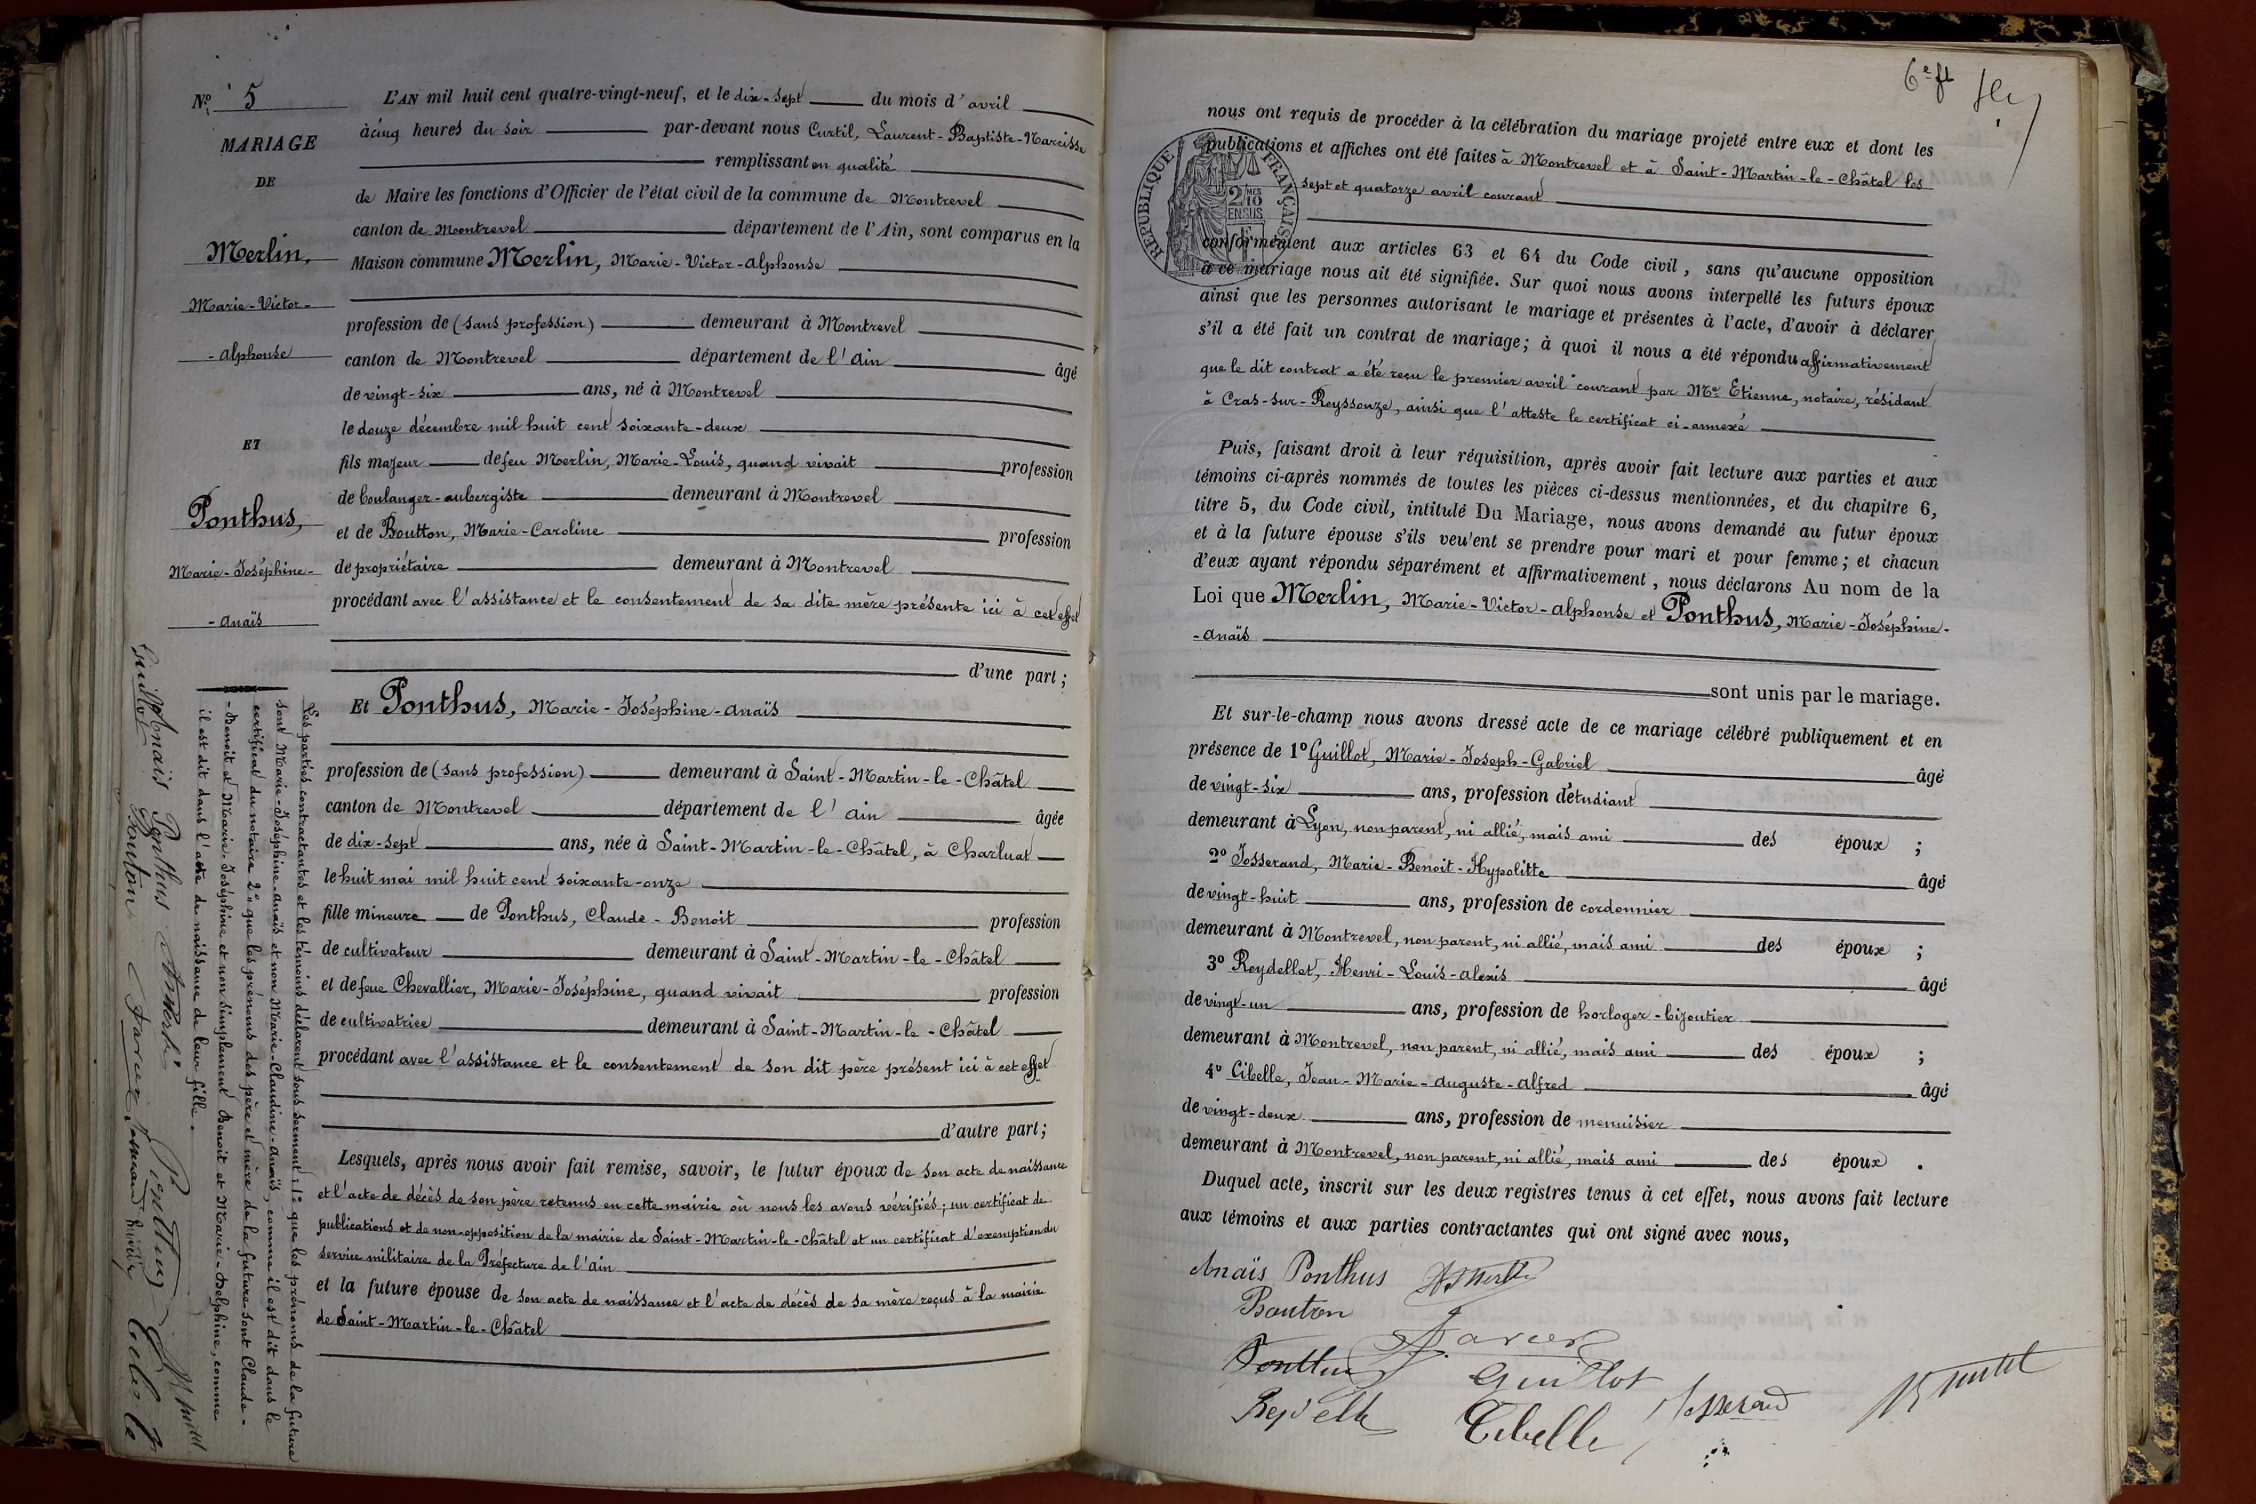 Nº 5
MARIAGE
DE
Merlin,
Marie-Victor-
-Alphonse
ET
Ponthus,
Marie-Joséphine-
-Anaïs
L'AN mil huit cent quatre-vingt-neuf, et le dix-sept du mois d'avril
à cinq heures du soir par-devant nous Curtil, Laurent-Baptiste-Narcisse
remplissant en qualité
de Maire les fonctions d'Officier de l'état civil de la commune de Montrevel
canton de Montrevel département de l'Ain, sont comparus en la
Maison commune Merlin, Marie-Victor-Alphonse
profession de (sans profession) demeurant à Montrevel
canton de Montrevel département de l'Ain âgé
de vingt-six ans, né à Montrevel
le douze décembre mil huit cent soixante-deux
fils majeur de feu Merlin, Marie-Louis, quand vivait profession
de boulanger-aubergiste demeurant à Montrevel
et de Boutton, Marie-Caroline profession
de propriétaire demeurant à Montrevel
procédant avec l'assistance et le consentement de sa dite mère présente ici à cet effet
d'une part;
Et Ponthus, Marie-Joséphine-Anaïs
profession de (sans profession) demeurant à Saint-Martin-le-Châtel
canton de Montrevel département de l'Ain âgée
de dix-sept ans, née à Saint-Martin-le-Châtel, à Charluat
le huit mai mil huit cent soixante-onze
fille mineure de Ponthus, Claude-Benoit profession
de cultivateur demeurant à Saint-Martin-le-Châtel
et de feue Chevallier, Marie-Joséphine, quand vivait profession
de cultivatrice demeurant à Saint-Martin-le-Châtel
procédant avec l'assistance et le consentement de son dit père présent ici à cet effet
d'autre part;
Lesquels, après nous avoir fait remise, savoir, le futur époux de son acte de naissance
et l'acte de décès de son père retenus en cette mairie où nous les avons vérifiés; un certificat de
publications et de non-opposition de la mairie de Saint-Martin-le-Châtel et un certificat d'exemption du
service militaire de la Préfecture de l'Ain
et la future épouse de son acte de naissance et l'acte de décès de sa mère reçus à la mairie
de Saint-Martin-le-Châtel
Les parties contractantes et les témoins déclarent sous serment: 1º que les prénoms de la future
sont Marie-Joséphine-Anaïs et non Marie-Claudine-Anaïs, comme il est dit dans le
certificat du notaire 2º que les prénoms des père et mère de la future sont Claude-
-Benoit et Marie-Joséphine et non simplement Benoit et Marie-Delphine, comme
il est dit dans l'acte de naissance de leur fille.
Anaïs Ponthus Ponthus
Guillot Bouton Josserand Cibelle
6e ft
nous ont requis de procéder à la célébration du mariage projeté entre eux et dont les
publications et affiches ont été faites à Montrevel et à Saint-Martin-le-Châtel les
sept et quatorze avril courant
RÉPUBLIQUE FRANÇAISE
2 MES
10
EN SUS
conformément aux articles 63 et 64 du Code civil, sans qu'aucune opposition
à ce mariage nous ait été signifiée. Sur quoi nous avons interpellé les futurs époux
ainsi que les personnes autorisant le mariage et présentes à l'acte, d'avoir à déclarer
s'il a été fait un contrat de mariage; à quoi il nous a été répondu affirmativement
que le dit contrat a été reçu le premier avril courant par Me Etienne, notaire, résidant
à Cras-sur-Reyssouze, ainsi que l'atteste le certificat ci-annexé
Puis, faisant droit à leur réquisition, après avoir fait lecture aux parties et aux
témoins ci-après nommés de toutes les pièces ci-dessus mentionnées, et du chapitre 6,
titre 5, du Code civil, intitulé Du Mariage, nous avons demandé au futur époux
et à la future épouse s'ils veulent se prendre pour mari et pour femme; et chacun
d'eux ayant répondu séparément et affirmativement, nous déclarons Au nom de la
Loi que Merlin, Marie-Victor-Alphonse et Ponthus, Marie-Joséphine-
-Anaïs
sont unis par le mariage.
Et sur-le-champ nous avons dressé acte de ce mariage célébré publiquement et en
présence de 1º Guillot, Marie-Joseph-Gabriel âgé
de vingt-six ans, profession d'étudiant
demeurant à Lyon, non parent, ni allié, mais ami des époux;
2º Josserand, Marie-Benoit-Hypolitte âgé
de vingt-huit ans, profession de cordonnier
demeurant à Montrevel, non parent, ni allié, mais ami des époux;
3º Reydellet, Henri-Louis-Alexis âgé
de vingt-un ans, profession de horloger-bijoutier
demeurant à Montrevel, non parent, ni allié, mais ami des époux;
4º Cibelle, Jean-Marie-Auguste-Alfred âgé
de vingt-deux ans, profession de menuisier
demeurant à Montrevel, non parent, ni allié, mais ami des époux.
Duquel acte, inscrit sur les deux registres tenus à cet effet, nous avons fait lecture
aux témoins et aux parties contractantes qui ont signé avec nous,
Anaïs Ponthus
Bouton
Ponthus Guillot
Cibelle Josserand